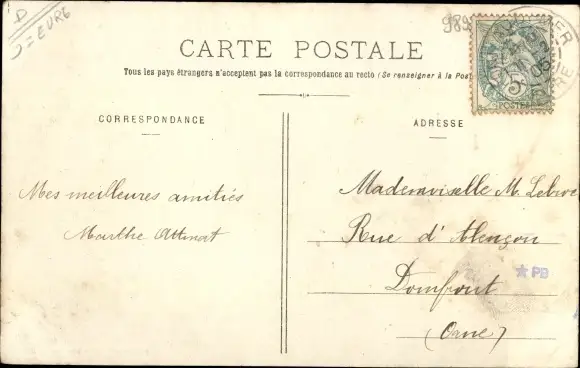 D
J = EURE
989
CARTE POSTALE
Tous les pays étrangers n'acceptent pas la correspondance au recto (Se renseigner à la Post
CORRESPONDANCE
ADRESSE
5
POSTES
05
Mes meilleures amitiés
Marthe
Mademoiselle M.
Rue d'Alençon
Domfront
(Orne)
PB